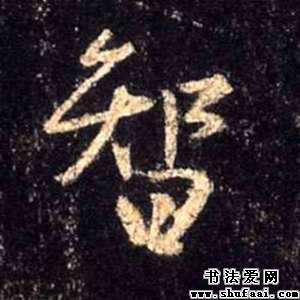 智
书法爱网
www.shufaai.com